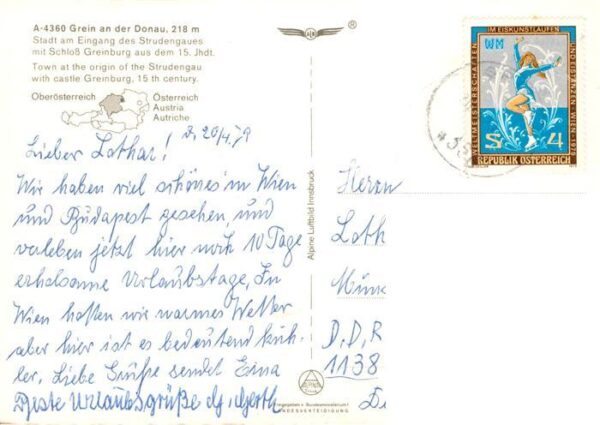 A-4360 Grein an der Donau, 218 m
Stadt am Eingang des Strudengaues
mit Schloß Greinburg aus dem 15. Jhdt.
Town at the origin of the Strudengau
with castle Greinburg, 15 th century.
Oberösterreich
Österreich
Austria
Autriche
26/4 79
Lieber Lothar!
Wir haben viel schönes in Wien
und Budapest gesehen, und
verleben jetzt hier noch 10 Tage
erholsame Urlaubstage, In
Wien hatten wir warmes Wetter
aber hier ist es bedeutend küh-
ler, Liebe Grüße sendet
Beste Urlaubsgrüße
Alpine Luftbild Innsbruck
WELTMEISTERSCHAFTEN
IM EISKUNSTLAUFEN
WM
S 4
REPUBLIK ÖSTERREICH
Herrn
Loth
D.D.R
1138